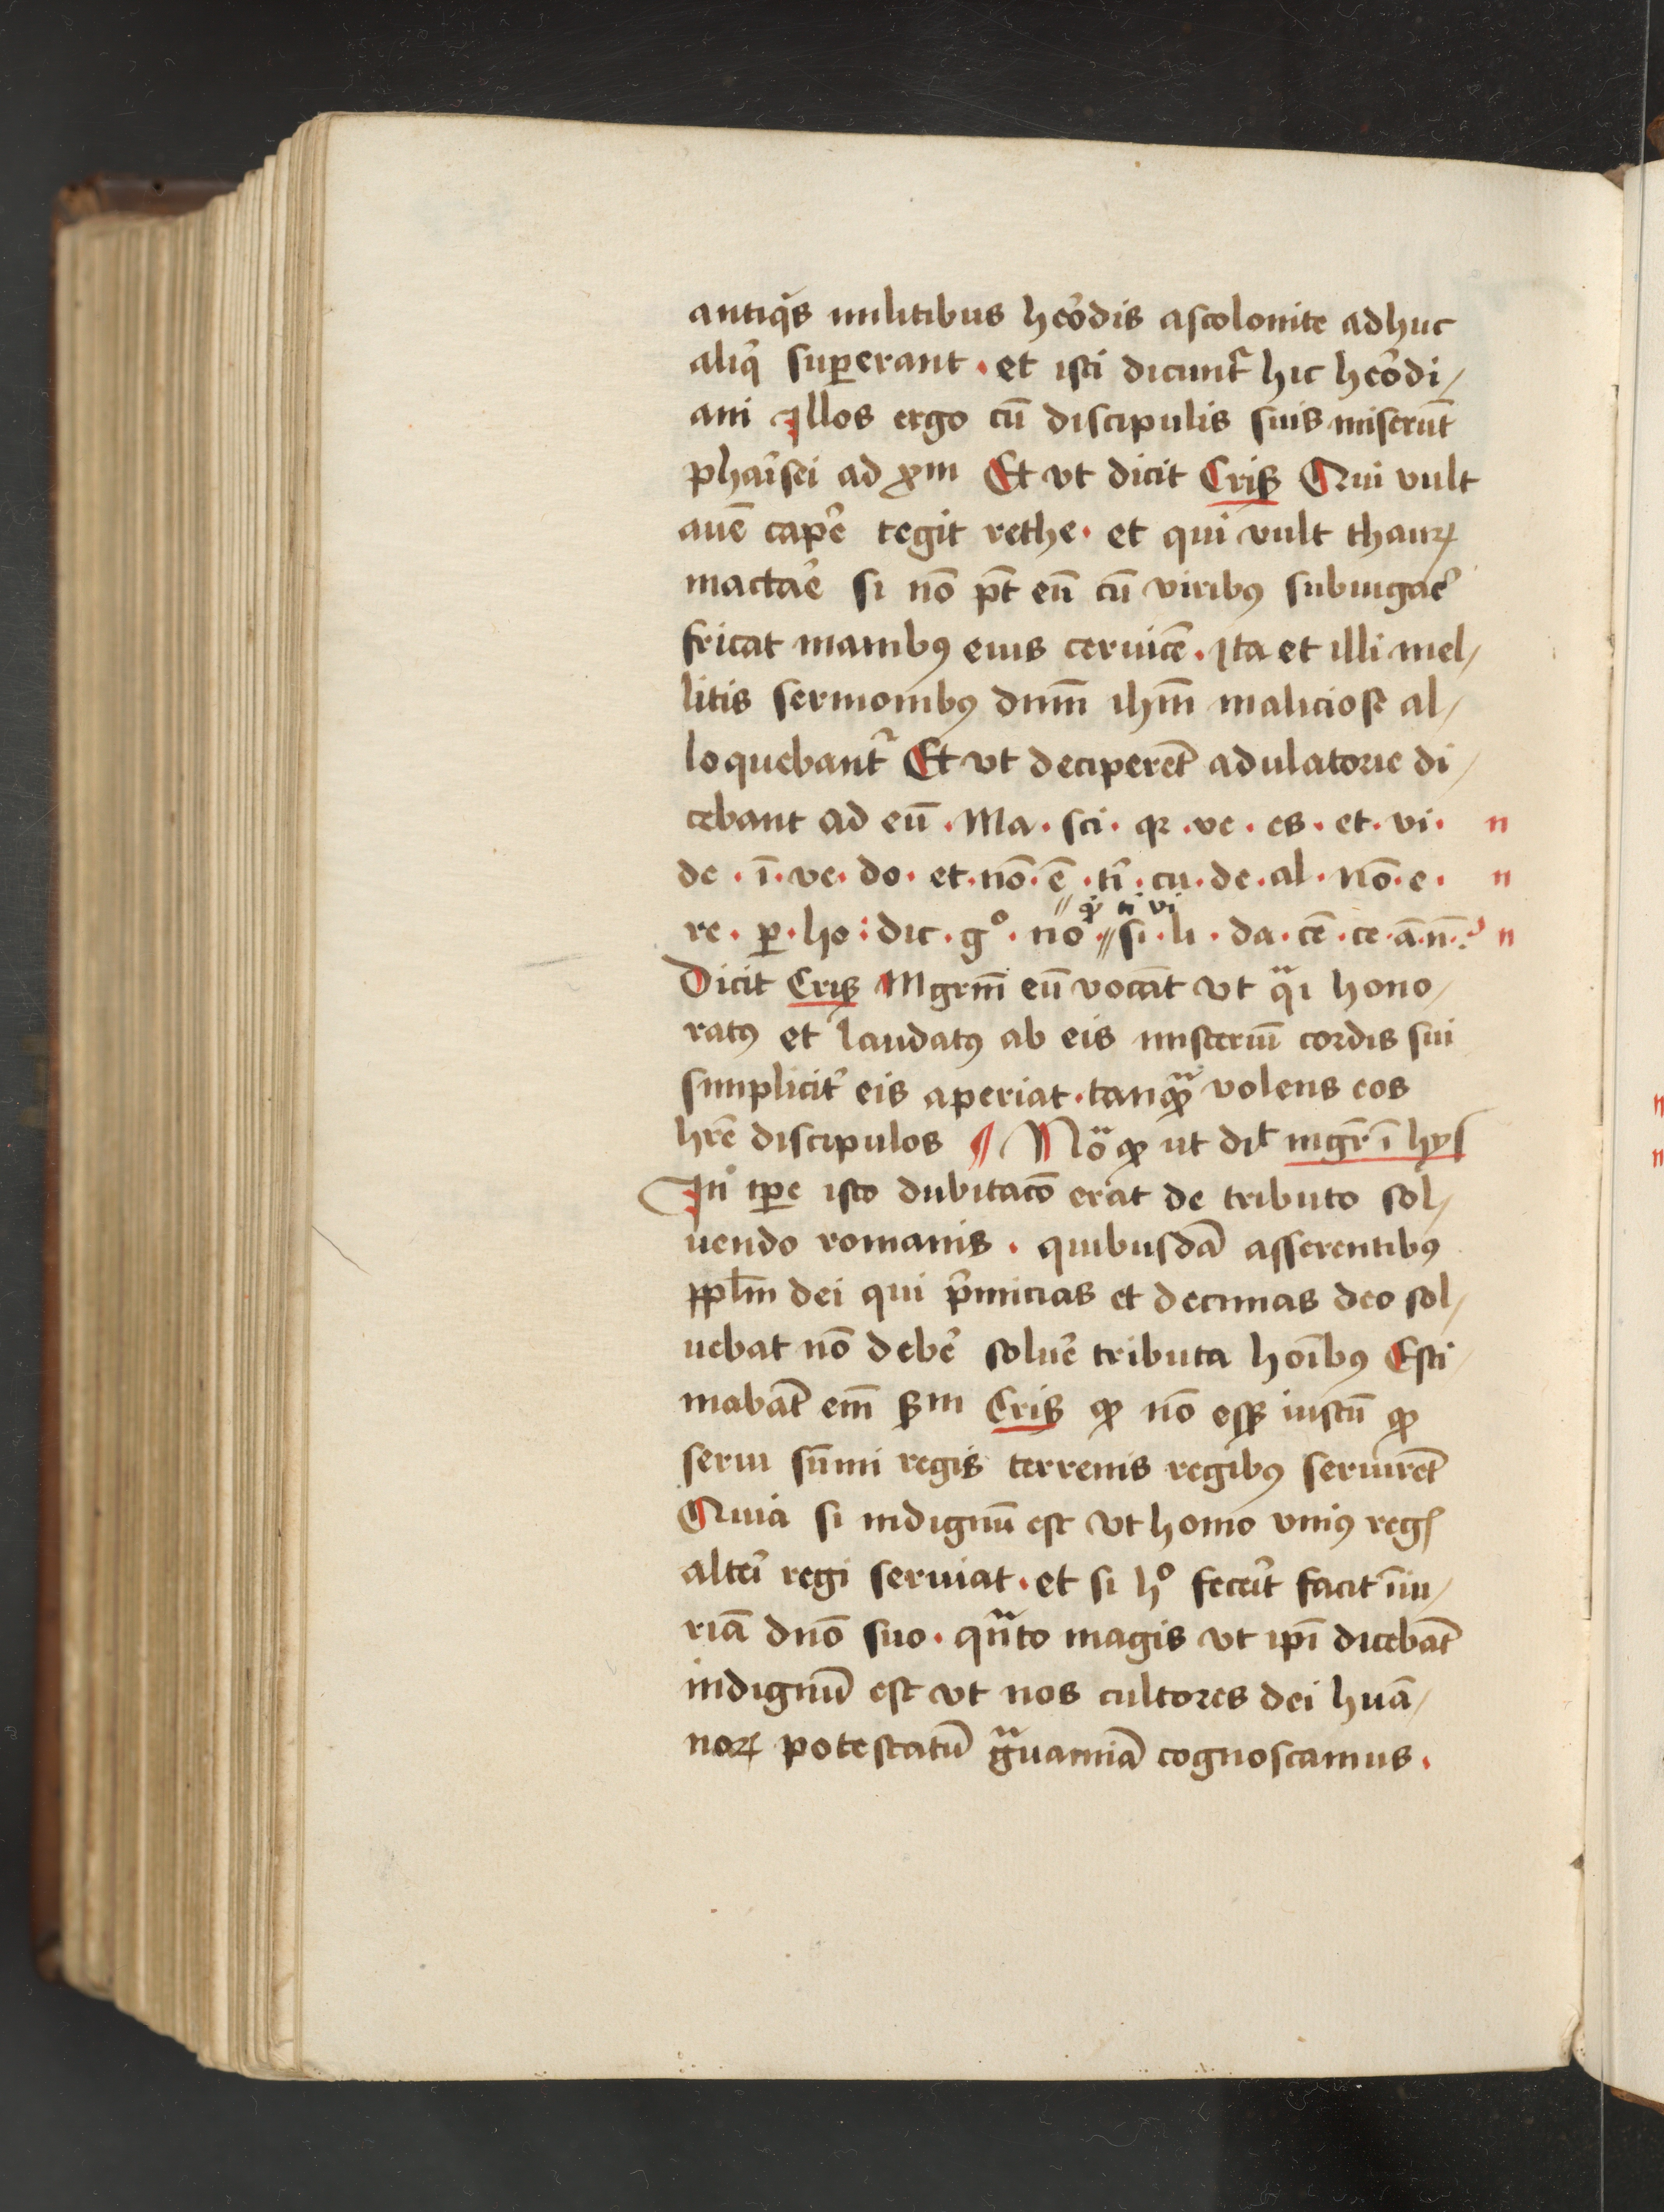 antiq̄s militibus heōdis ascolonite adhuc
aliq̄ suꝑerant · et isti dicunt᷑ hic heōdi/
ani Illos ergo cū discipulis suis miserūt
phaīsei ad xp̄m Et vt dicit Criꝭ Qui vult
auē capē tegit rethe · et qui vult thauꝝ
mactaē si nō p̄t eū cū viribꝰ subiugaē
fricat manibꝰ eius ceruicē · Ita et illi mel/
litis sermonibꝰ dn̄m ihm̄ maliciose al/
loquebant᷑ Et vt deciperēt adulatorie di/
cebant ad eū · Ma · sci · qꝛ · ve · es · et · vi · n
de · ī · ve · do · et · nō · ē · tī · cu · de · al · nō · e · n
qͥ ti vi
re · ꝑ · ho : dic · gͦ · no · // si · li · da · cē · ce · ā · n̄ · ? n
Dicit Criꝭ Mgrm̄ eū vocāt vt qᵃi hono/
ratꝰ et laudatꝰ ab eis misteriū cordis sui
simplicit᷑ eis aperiat · tanqᵃꝫ volens eos
hr̄e discipulos ¶ Nō ꝙ ut dīt mgr̄ ī hys
In tꝑe isto dubitacō erat de tributo sol/
uendo romanis · quibusdā asserentibꝰ
pp̄lm dei qui p̄micias et decimas deo sol/
uebat nō debē soluē tributa hoībꝰ Esti/
mabāt em̄ ẜm Criꝭ ꝙ nō eēꝫ iustū ꝙ
serui sūmi regis terrenis regibꝰ seruirēt
Quia si indignū est vt homo vniꝰ regꝭ
alteī regi seruiat · et si hͦ feceīt facit īiu/
riā dn̄o suo · qᵃnto magis vt ipī dicebāt
indignū est vt nos cultores dei huā/
noꝝ potestatū gᵃuaminā cognoscamus ·